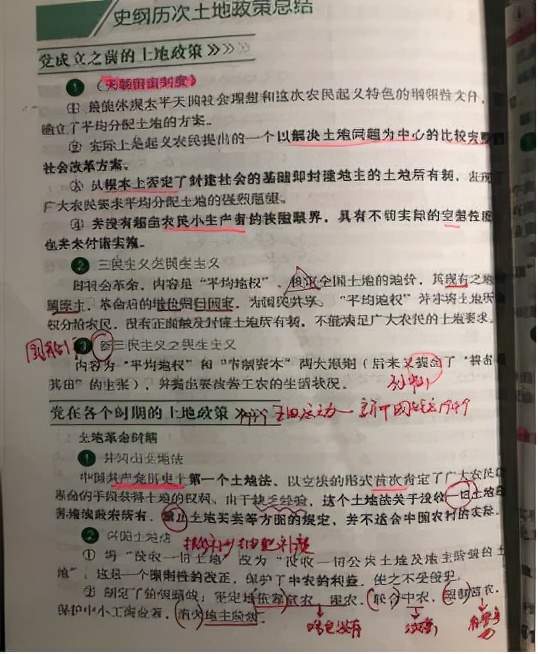 史纲历次土地政策总结
党成立之前的土地政策
1 《天朝田亩制度》
① 最能体现太平天国社会理想和这次农民起义特色的纲领性文件，
确立了平均分配土地的方案。
② 实际上是起义农民提出的一个以解决土地问题为中心的比较完整的
社会改革方案。
③ 从根本上否定了封建社会的基础即封建地主的土地所有制，表现了
广大农民要求平均分配土地的强烈愿望。
④ 并没有超出农民小生产者的狭隘眼界，具有不切实际的空想性质
也并未付诸实施。
2 三民主义之民生主义
即社会革命，内容是“平均地权”、核定全国土地的地价，其现有之地
属原主，革命后的增值归国家，为国民共享。“平均地权”并未将土地所
权分给农民，没有正面触及封建土地所有制，不能满足广大农民的土地要求。
3 新三民主义之民生主义
内容为“平均地权”和“节制资本”两大原则（后来又提出了“耕者
其田”的主张），并提出要改善工农的生活状况。
党在各个时期的土地政策
土地革命时期
1 井冈山土地法
中国共产党历史上第一个土地法，以立法的形式首次肯定了广大农民以
革命的手段获得土地的权利。由于缺乏经验，这个土地法关于没收一切土地
禁止土地买卖等方面的规定，并不适合中国农村的实际。
2 兴国土地法
① 将“没收一切土地”改为“没收一切公共土地及地主阶级的土
地”，这是一个原则性的改正，保护了中农的利益，使之不受侵犯。
② 制定了阶级路线：坚定地依靠贫农、雇农，联合中农，限制富农，
保护中小工商业者，消灭地主阶级。